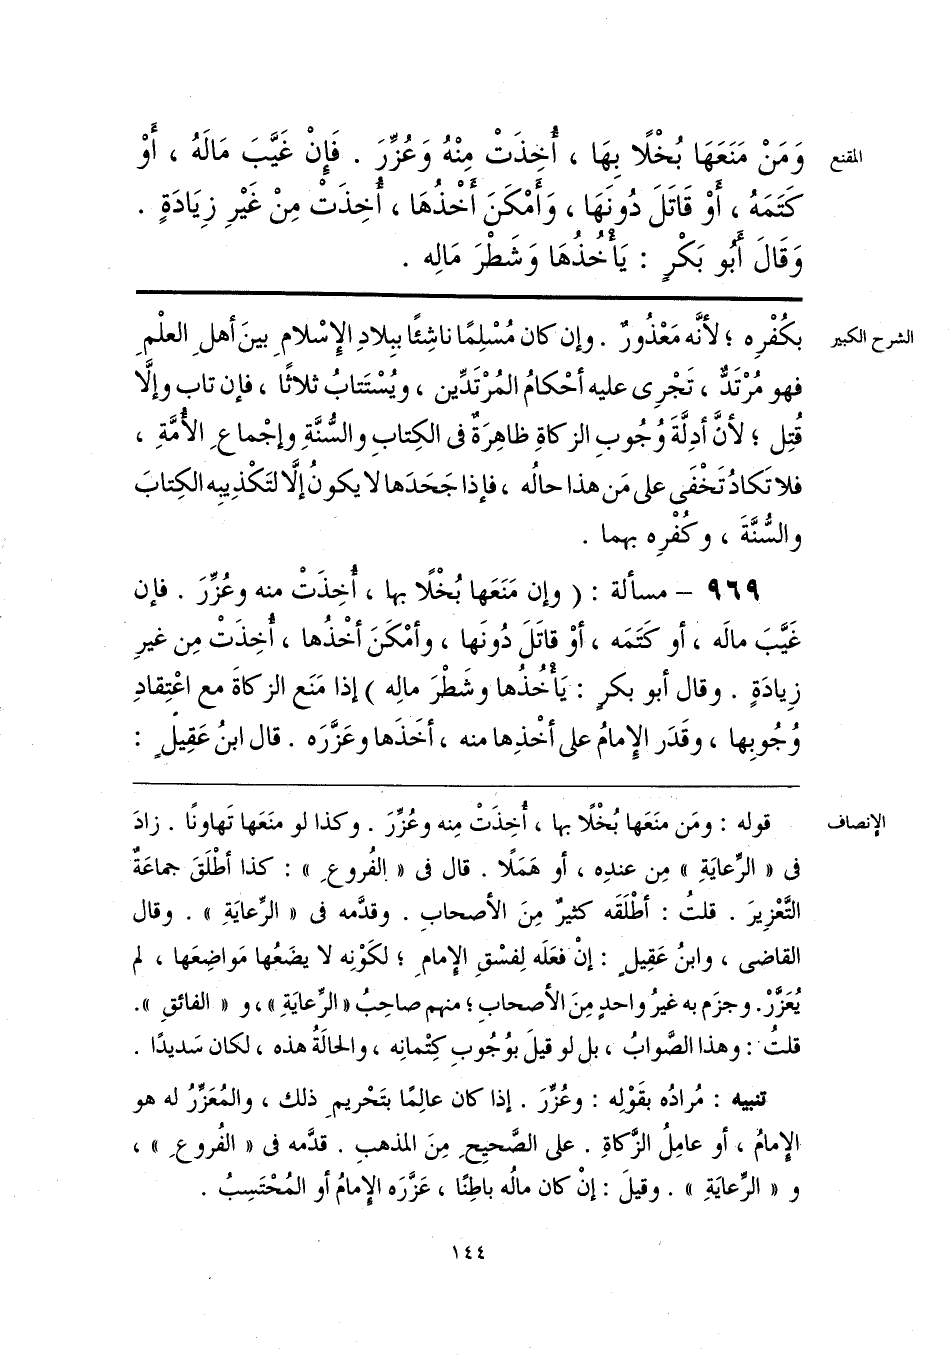 المقنع وَمَنْ مَنَعَهَا بُخْلًا بِهَا ، أُخِذَتْ مِنْهُ وَعُزِّرَ . فَإِنْ غَيَّبَ مَالَهُ ، أَوْ
كَتَمَهُ ، أَوْ قَاتَلَ دُونَهَا ، وَأَمْكَنَ أَخْذُهَا ، أُخِذَتْ مِنْ غَيْرِ زِيَادَةٍ .
وَقَالَ أَبُو بَكْرٍ : يَأْخُذُهَا وَشَطْرَ مَالِه .
الشرح الكبير بكُفْرِه ؛ لأنَّه مَعْذُورٌ . وإن كان مُسْلِمًا ناشِئًا ببِلادِ الإِسْلامِ بينَ أهلِ العلْمِ
فهو مُرْتَدٌّ ، تَجْرِى عليه أحْكامُ المُرْتَدِّين ، ويُسْتَتابُ ثلاثًا ، فإن تاب وإلَّا
قُتِل ؛ لأنَّ أدِلَّةَ وُجُوبِ الزكاةِ ظاهِرَةٌ فى الكِتابِ والسُّنَّةِ وإجْماعِ الأُمَّةِ ،
فلا تَكادُ تَخْفَى على مَن هذا حالُه ، فإذا جَحَدَها لا يكونُ إلَّا لتَكْذِيبِه الكِتابَ
والسُّنَّةَ ، وكُفْرِه بهما .
٩٦٩ – مسألة : ( وإن مَنَعَها بُخْلًا بها ، أُخِذَتْ منه وعُزِّرَ . فإن
غَيَّبَ مالَه ، أو كَتَمَه ، أوْ قاتَلَ دُونَها ، وأمْكَنَ أخْذُها ، أُخِذَتْ مِن غيرِ
زِيادَةٍ . وقال أبو بكرٍ : يَأْخُذُها وشَطْرَ مالِه ) إذا مَنَع الزكاةَ مع اعْتِقادِ
وُجُوبِها ، وقَدَر الإِمامُ على أخْذِها منه ، أخَذَها وعَزَّرَه . قال ابنُ عَقِيلٍ :
الإنصاف قوله : ومَن منَعَها بُخْلًا بها ، أُخِذَتْ مِنه وعُزِّرَ . وكذا لو منَعَها تَهاونًا . زادَ
فى « الرِّعايَةِ » مِن عندِه ، أو هَمَلًا . قال فى « الفُروعِ » : كذا أطْلَقَ جماعَةٌ
التَّعْزِيرَ . قلتُ : أطْلَقَه كثيرٌ مِنَ الأصحابِ . وقدَّمه فى « الرِّعايَةِ » . وقال
القاضى ، وابنُ عَقِيلٍ : إنْ فعَلَه لفِسْقِ الإِمامِ ؛ لكَوْنِه لا يضَعُها مَواضِعَها ، لم
يُعَزَّرْ. وجزَم به غيرُ واحدٍ مِنَ الأصحابِ ؛ منهم صاحِبُ « الرِّعايَةِ » ، و « الفائقِ ».
قلتُ : وهذا الصَّوابُ ، بل لو قيلَ بوُجُوبِ كِتْمانِه ، والحالَةُ هذه ، لكان سَديدًا .
تنبيه : مُرادُه بقَوْلِه : وعُزِّرَ . إذا كان عالِمًا بتَحْريمِ ذلك ، والمُعَزِّرُ له هو
الإِمامُ ، أو عامِلُ الزَّكاةِ . على الصَّحيحِ مِنَ المذهبِ . قدَّمه فى « الفُروعِ » ،
و « الرِّعايَةِ » . وقيلَ : إنْ كان مالُه باطِنًا ، عَزَّرَه الإِمامُ أو المُحْتَسِبُ .
١٤٤